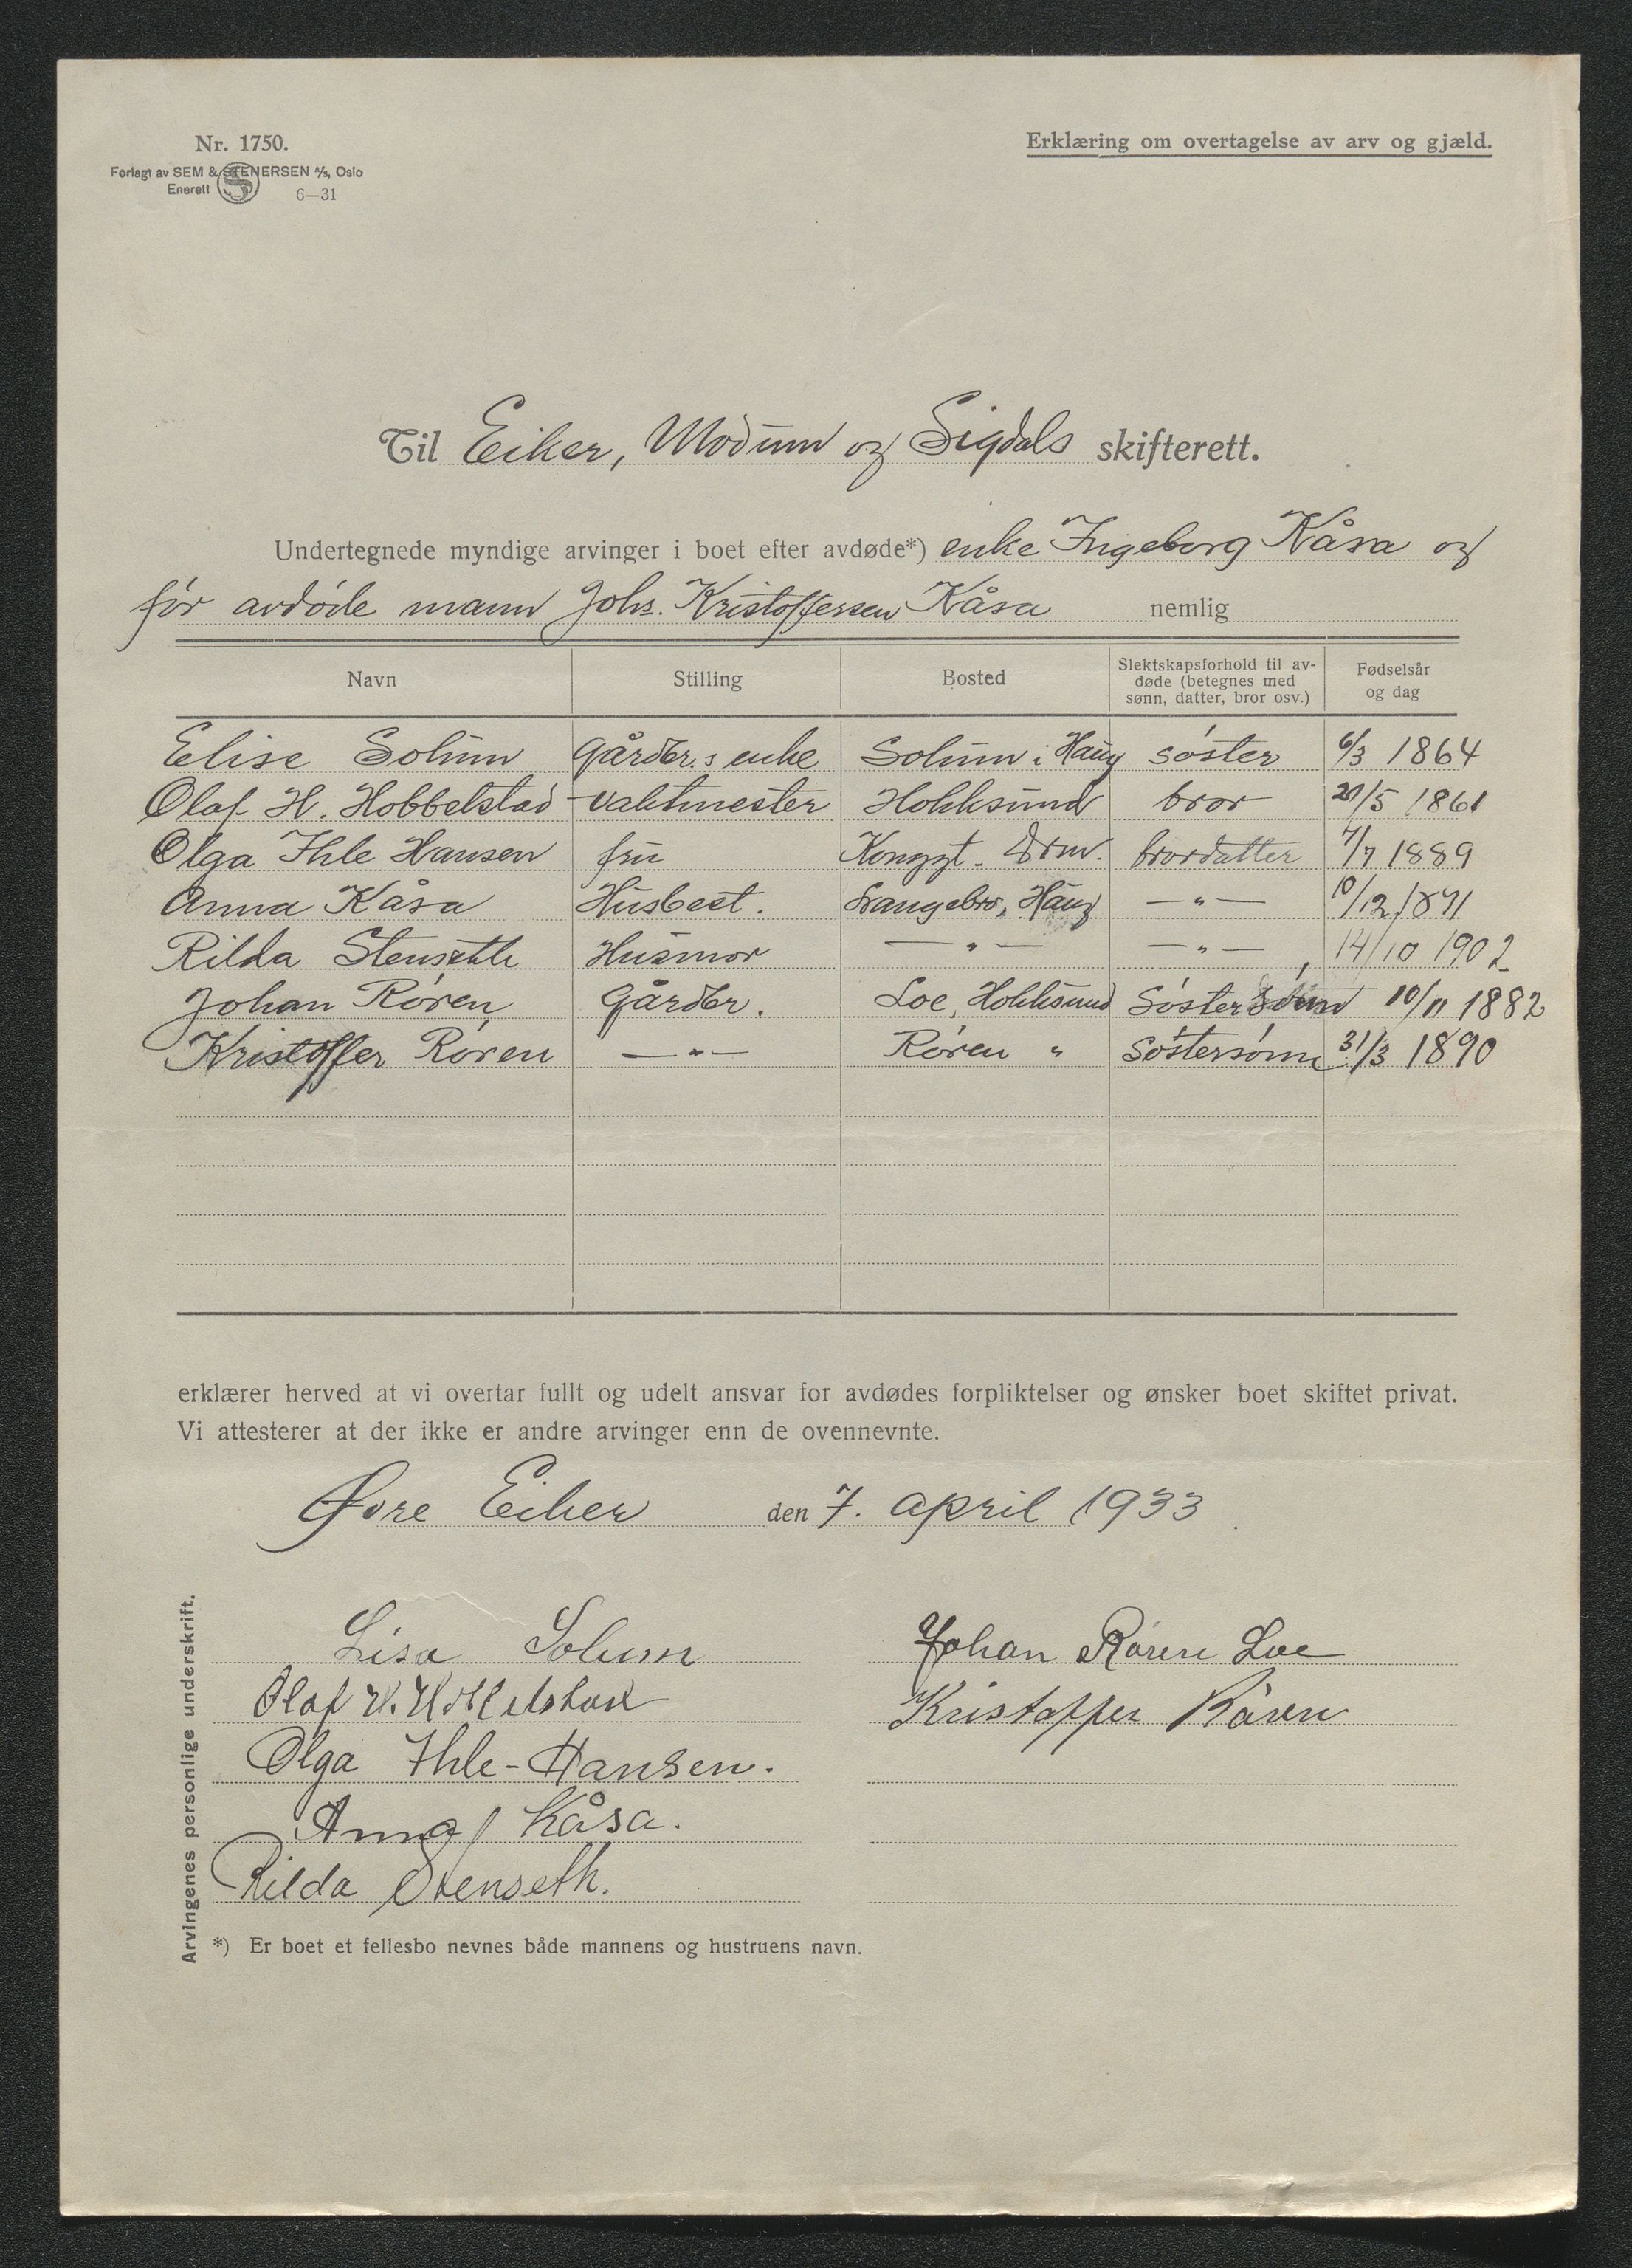 Nr. 1750.
Forlagt av SEM & STENERSEN A/S, Oslo
Enerett S 6—31
Erklæring om overtagelse av arv og gjæld.
Til Eiker, Modum og Sigdals skifterett.
Undertegnede myndige arvinger i boet efter avdøde*) enke Ingeborg Kåsa og
før avdøde mann Johs. Kristoffersen Kåsa nemlig
Navn Stilling Bosted Slektskapsforhold til avdøde (betegnes med sønn, datter, bror osv.) Fødselsår og dag
Elise Solum Gårdbr.s enke Solum i Haug søster 6/3 1864
Olaf H. Hobbelstad vaktmester Hokksund bror 20/5 1861
Olga Ihle Hansen fru Konggt. Drm. brordatter 7/7 1889
Anna Kåsa Husbest. Langebro, Haug —"— 10/12 1891
Rilda Stenseth Husmor —"— —"— 14/10 1902
Johan Røren Gårdbr. Loe, Hokksund Søstersønn 10/11 1882
Kristoffer Røren —"— Røren " Søstersønn 31/3 1890
erklærer herved at vi overtar fullt og udelt ansvar for avdødes forpliktelser og ønsker boet skiftet privat.
Vi attesterer at der ikke er andre arvinger enn de ovennevnte.
Øvre Eiker den 7. april 1933
Arvingenes personlige underskrift.
Lisa Solum
Olaf H. Hobbelstad
Olga Ihle-Hansen.
Anna Kåsa.
Rilda Stenseth.
Johan Røren Loe
Kristoffer Røren
*) Er boet et fellesbo nevnes både mannens og hustruens navn.